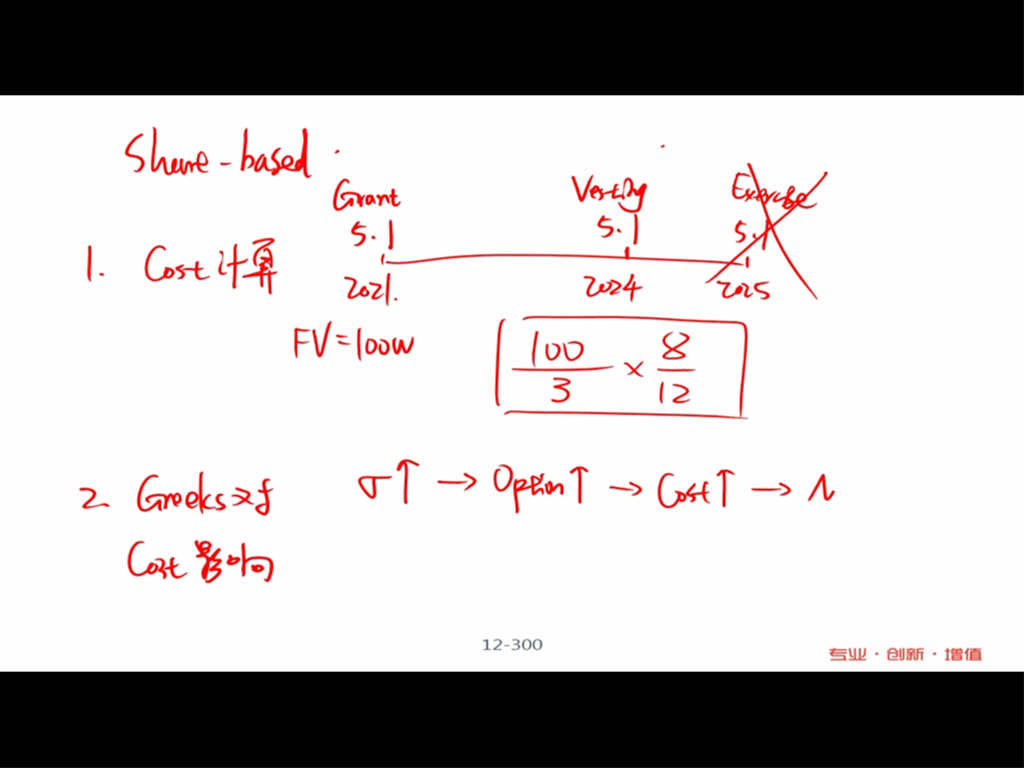 Share-based
Grant Vesting Exercise
5.1 5.1 5.1
1. Cost计算
2021. 2024 2025
FV=100W
100/3 × 8/12
2. Greeks对 σ↑ → Option↑ → Cost↑ →
Cost影响
12-300
专业·创新·增值